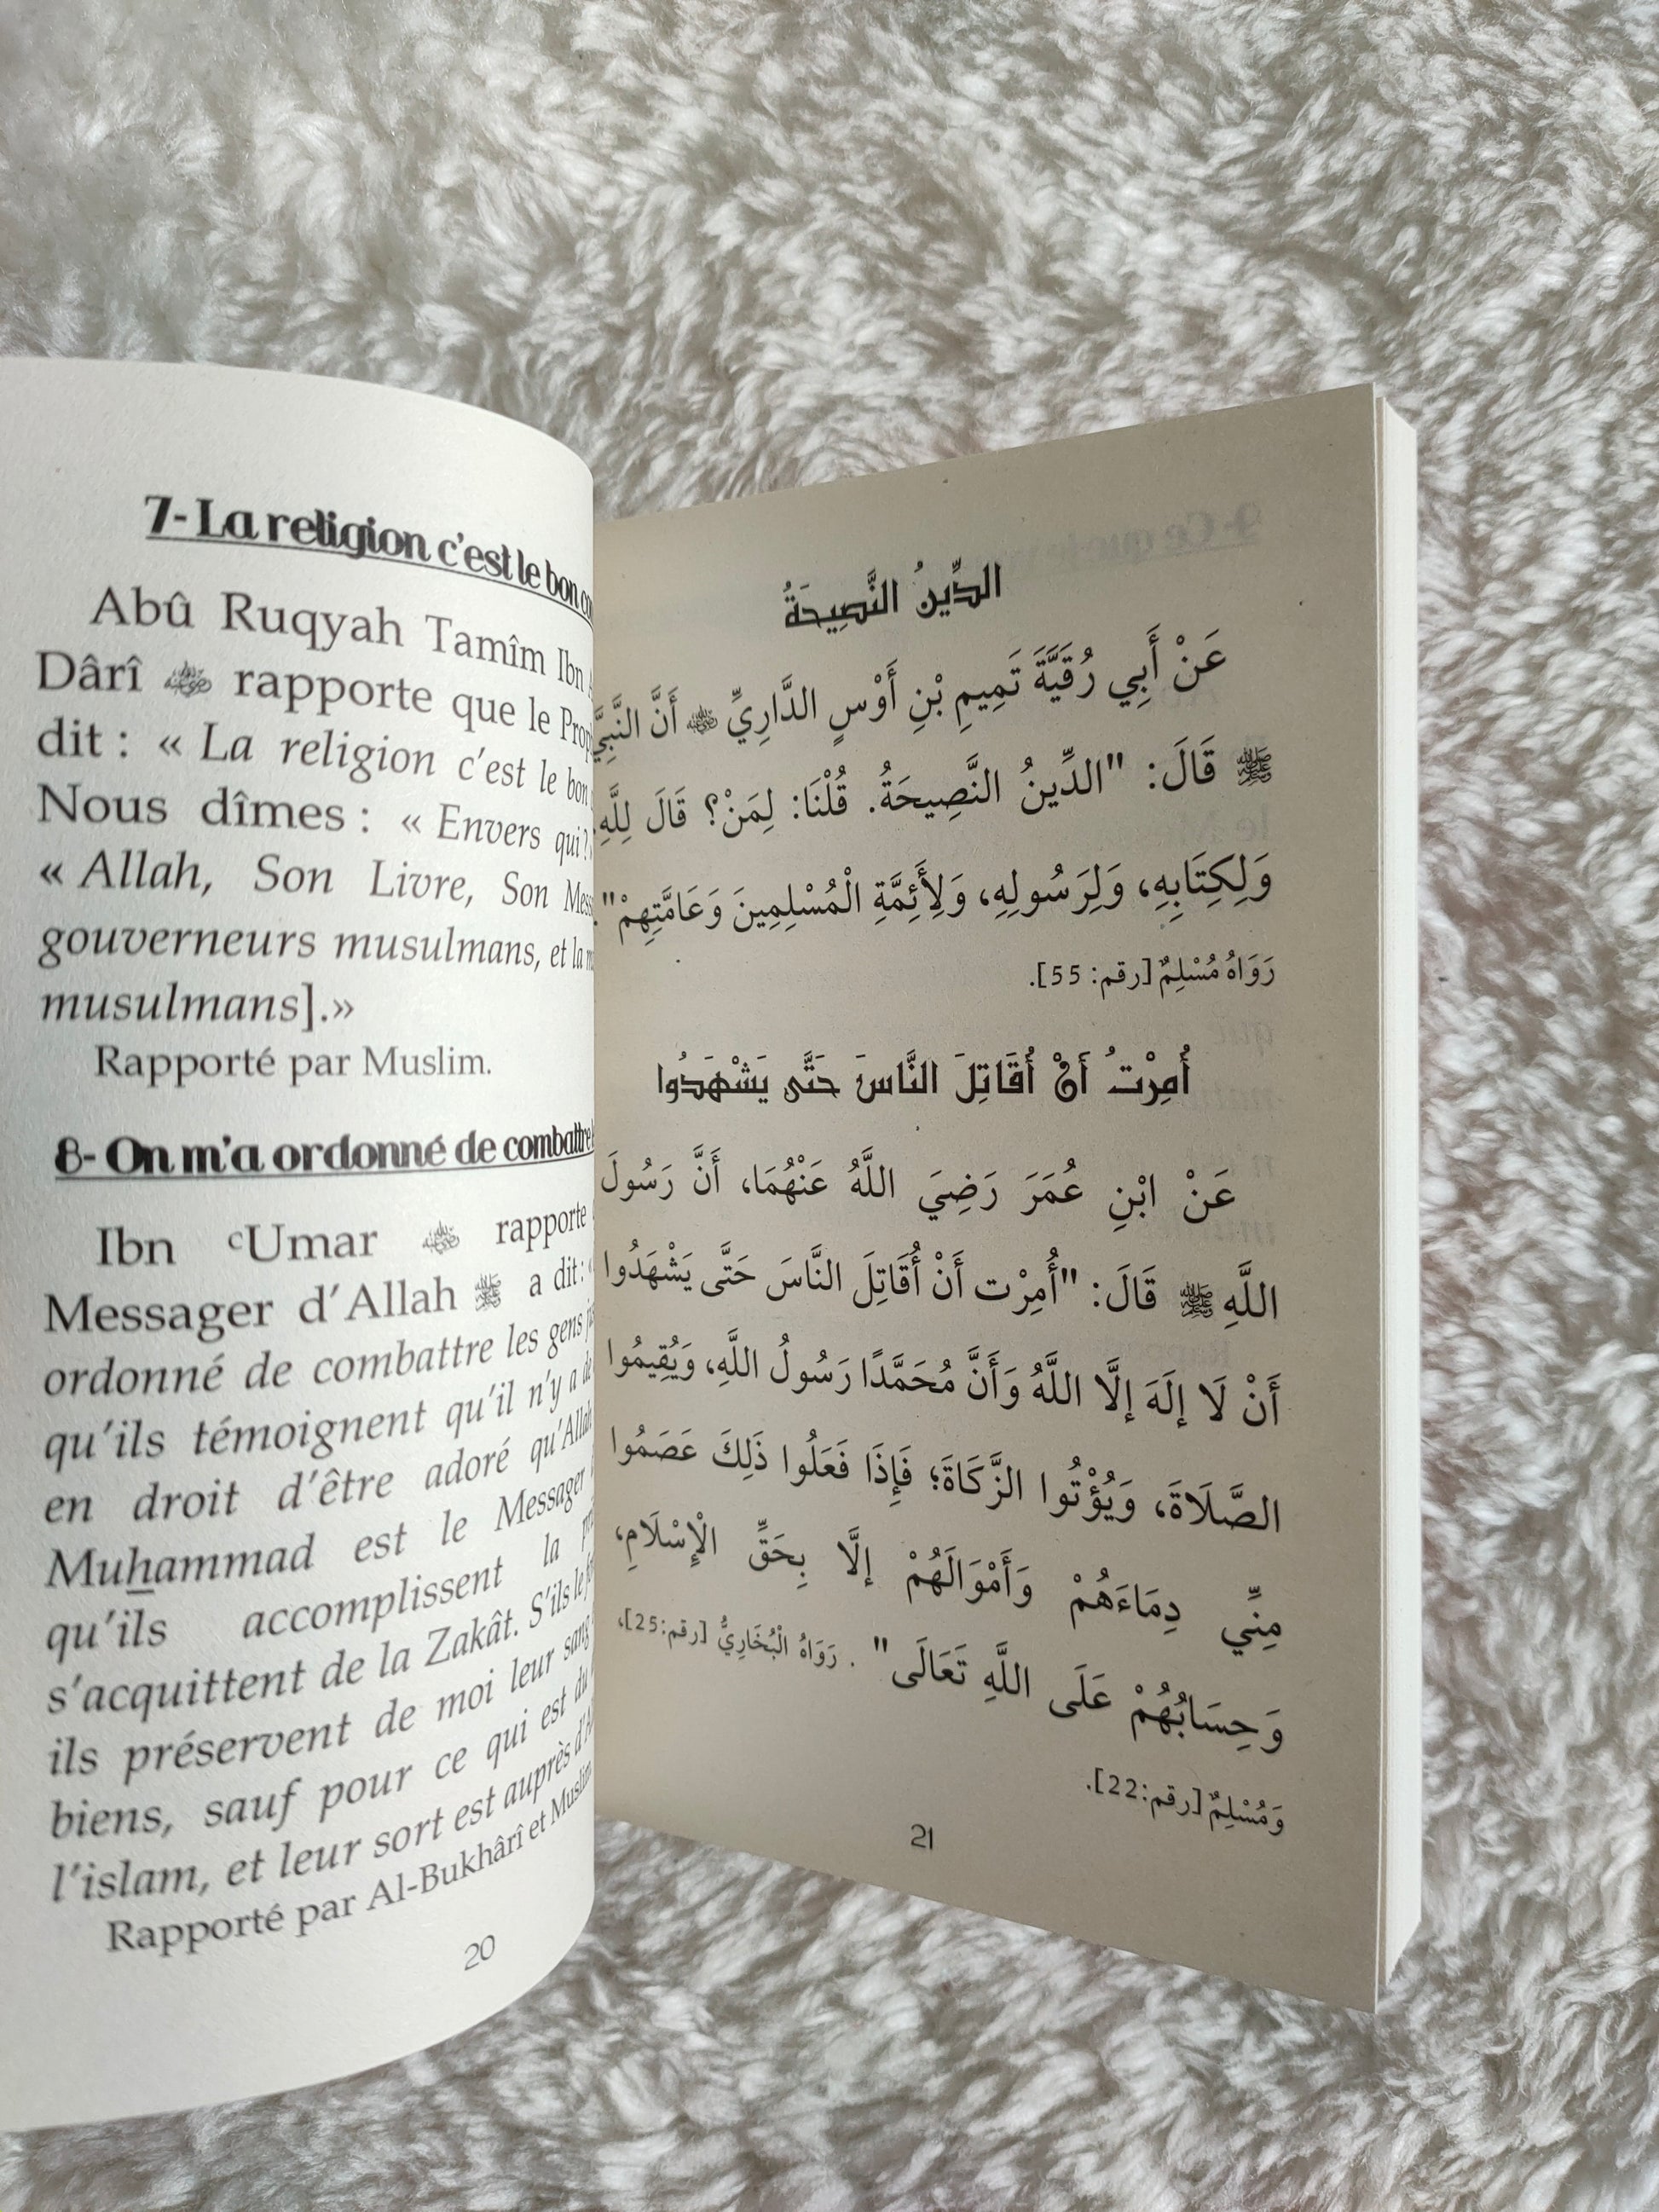 7- La religion c'est le bon
Abû Ruqyah Tamîm Ibn
Dârî rapporte que le
dit : « La religion c'est le bon
Nous dîmes : « Envers qui ?
« Allah, Son Livre, Son
gouverneurs musulmans, et la
musulmans].»
Rapporté par Muslim.
8- On m'a ordonné de combattre
Ibn ᶜUmar rapporte
Messager d'Allah ﷺ a dit : «
ordonné de combattre les gens
qu'ils témoignent qu'il n'y a
en droit d'être adoré qu'Allah
Muhammad est le Messager
qu'ils accomplissent la
s'acquittent de la Zakât. S'ils le
ils préservent de moi leur sang
biens, sauf pour ce qui est du
l'islam, et leur sort est auprès
Rapporté par Al-Bukhârî et Muslim
20
الدِّينُ النَّصِيحَةُ
عَنْ أَبِي رُقَيَّةَ تَمِيمِ بْنِ أَوْسٍ الدَّارِيِّ أَنَّ النَّبِيَّ
ﷺ قَالَ: "الدِّينُ النَّصِيحَةُ. قُلْنَا: لِمَنْ؟ قَالَ لِلَّهِ،
وَلِكِتَابِهِ، وَلِرَسُولِهِ، وَلِأَئِمَّةِ الْمُسْلِمِينَ وَعَامَّتِهِمْ".
رَوَاهُ مُسْلِمٌ [رقم: 55].
أُمِرْتُ أَنْ أُقَاتِلَ النَّاسَ حَتَّى يَشْهَدُوا
عَنْ ابْنِ عُمَرَ رَضِيَ اللَّهُ عَنْهُمَا، أَنَّ رَسُولَ
اللَّهِ ﷺ قَالَ: "أُمِرْت أَنْ أُقَاتِلَ النَّاسَ حَتَّى يَشْهَدُوا
أَنْ لَا إلَهَ إلَّا اللَّهُ وَأَنَّ مُحَمَّدًا رَسُولُ اللَّهِ، وَيُقِيمُوا
الصَّلَاةَ، وَيُؤْتُوا الزَّكَاةَ؛ فَإِذَا فَعَلُوا ذَلِكَ عَصَمُوا
مِنِّي دِمَاءَهُمْ وَأَمْوَالَهُمْ إلَّا بِحَقِّ الْإِسْلَامِ،
وَحِسَابُهُمْ عَلَى اللَّهِ تَعَالَى" . رَوَاهُ الْبُخَارِيُّ [رقم:25]،
وَمُسْلِمٌ [رقم:22].
21